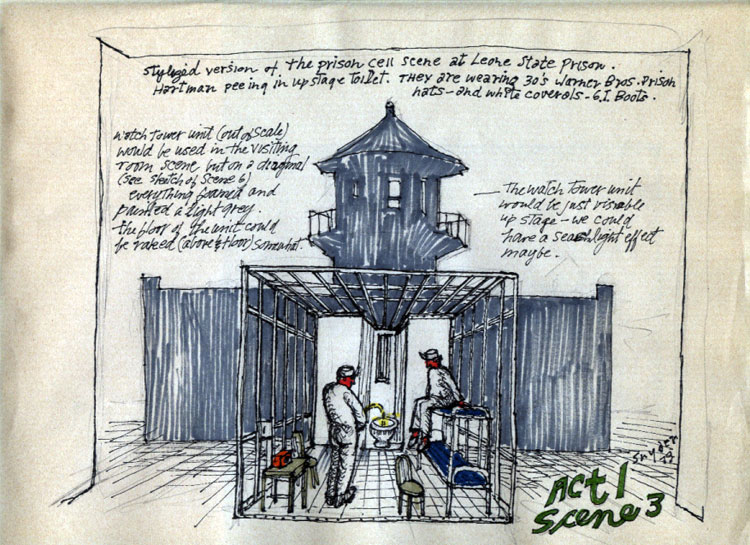 stylized version of the prison cell scene at Leone State Prison.
Hartman peeing in upstage toilet. They are wearing 30's Warner Bros. Prison
hats - and white coveralls - G.I. Boots.
Watch Tower unit (out of scale)
would be used in the visiting
room scene but on a diagonal
(see sketch of scene 6)
everything foamed and
painted a light grey.
the floor of the unit could
be raked (above floor) somewhat.
— The watch tower unit
would be just visable
up stage - we could
have a seachlight effect
maybe.
Snyder
Act 1
Scene 3